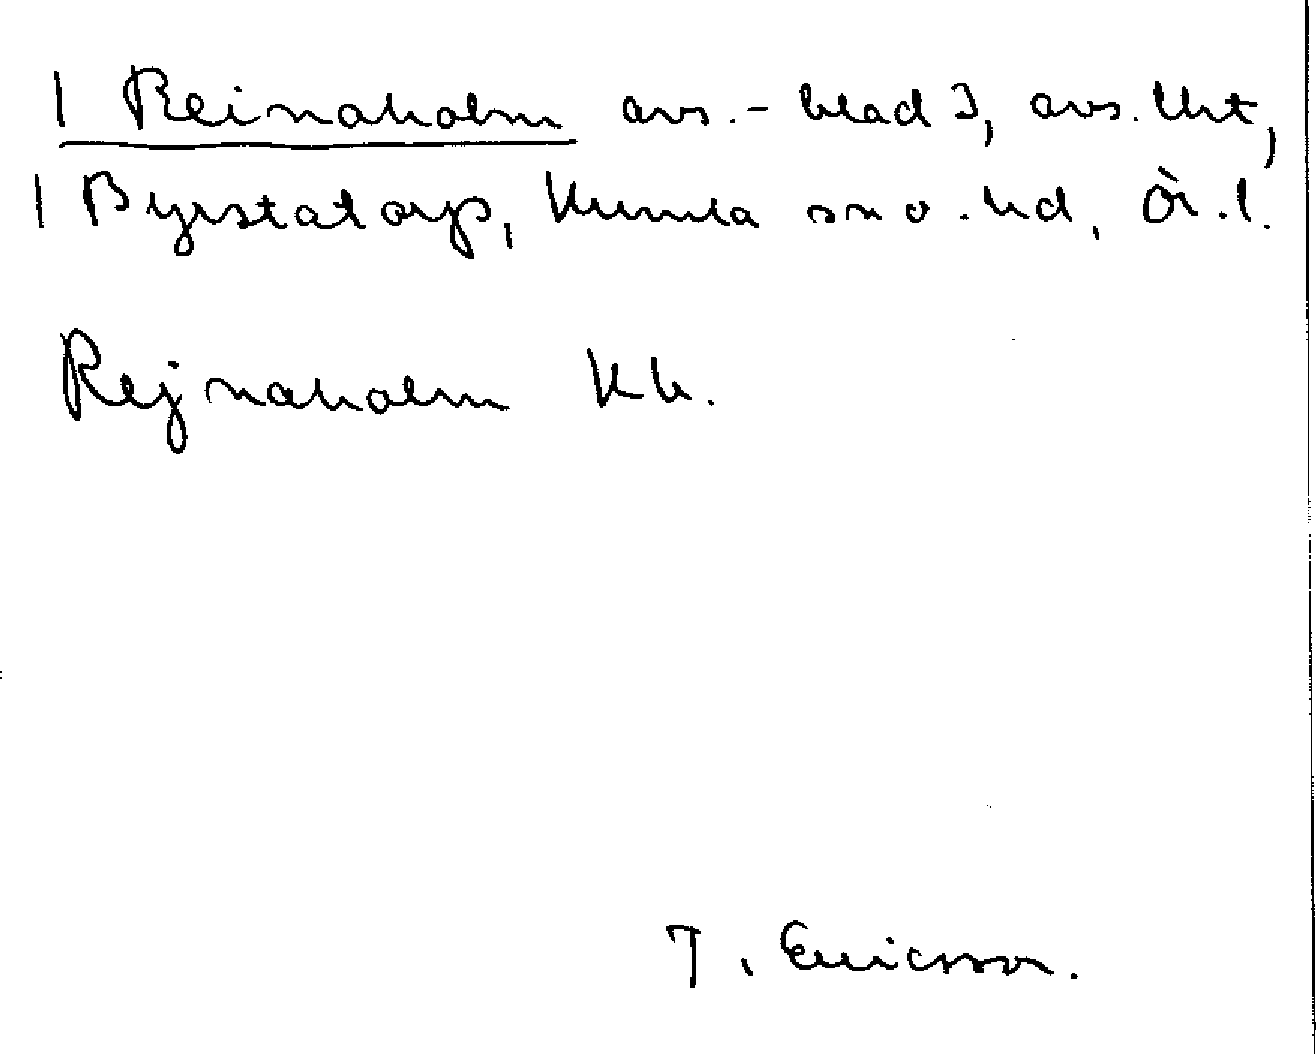 | Reinaholm avs.-blad 3, avs. Ukt,
| Byrstatorp, Kumla sn o. hd, Ör. l.
Rejnaholm Kk.
T. Ericsson.